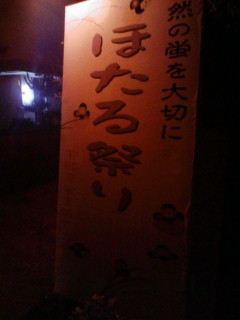 然の蛍を大切に
ほたる祭り